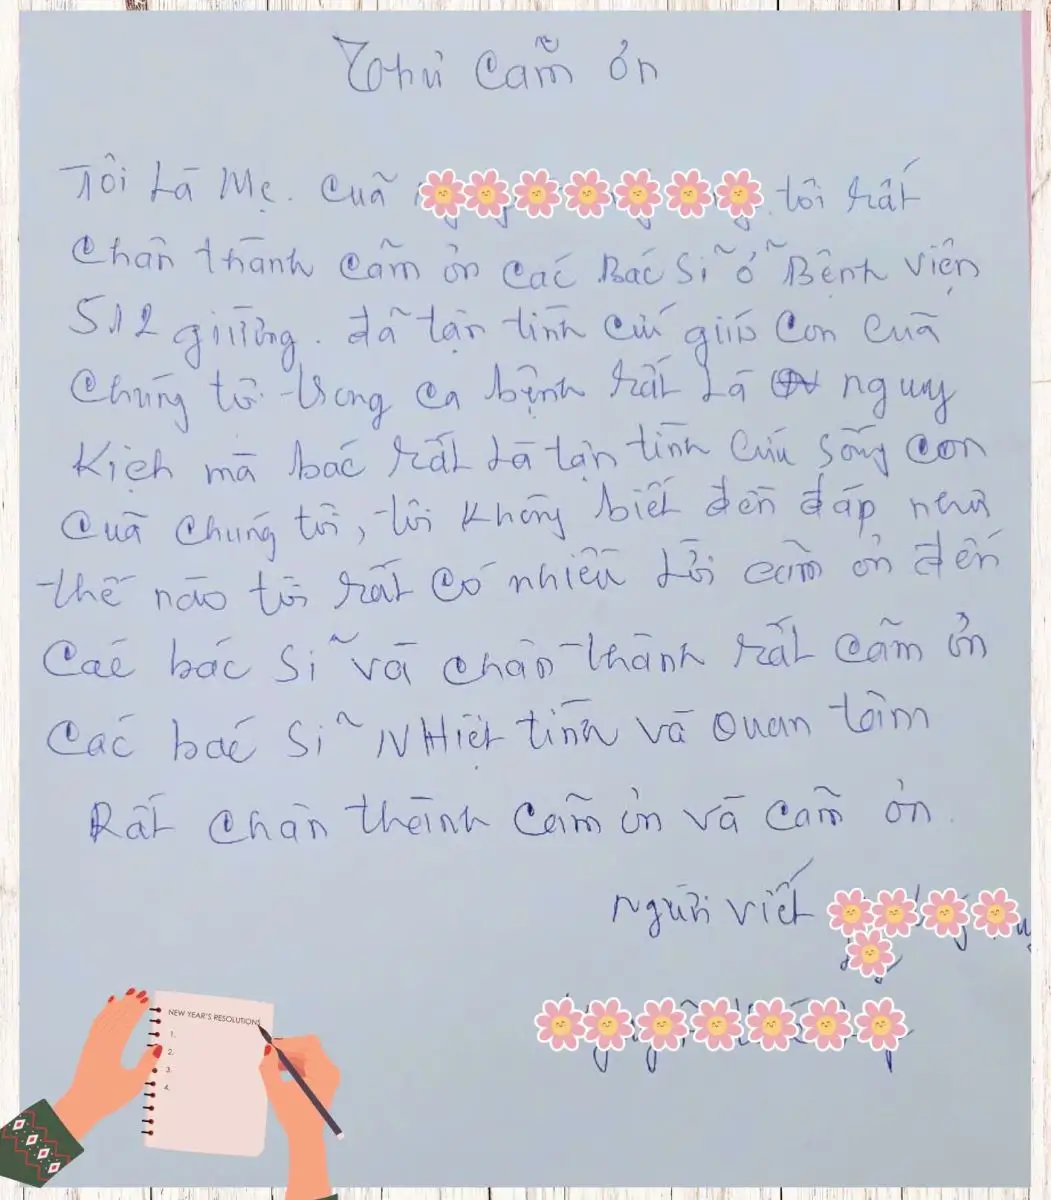 Thư Cãm ơn
Tôi Là Mẹ. Cuã tôi rất
Chân thành Cãm ơn Các Bác Sĩ ở Bệnh viện
512 giường. đã tận tình Cứu giúp Con Cuã
Chúng tôi trong Ca bệnh rất Là nguy
Kịch mà bác rất Là tận tình Cứu Sống Con
Cuã Chúng tôi, tôi Không biết đền đáp như
thế nào tôi rất Có nhiều Lời cãm ơn đến
Các bác Sĩ và chân thành rất Cãm ơn
Các bác Sĩ NHiệt tình và Quan tâm
Rất Chân thành Cãm ơn và Cãm ơn.
người viết
NEW YEAR'S RESOLUTIONS
1.
2.
3.
4.